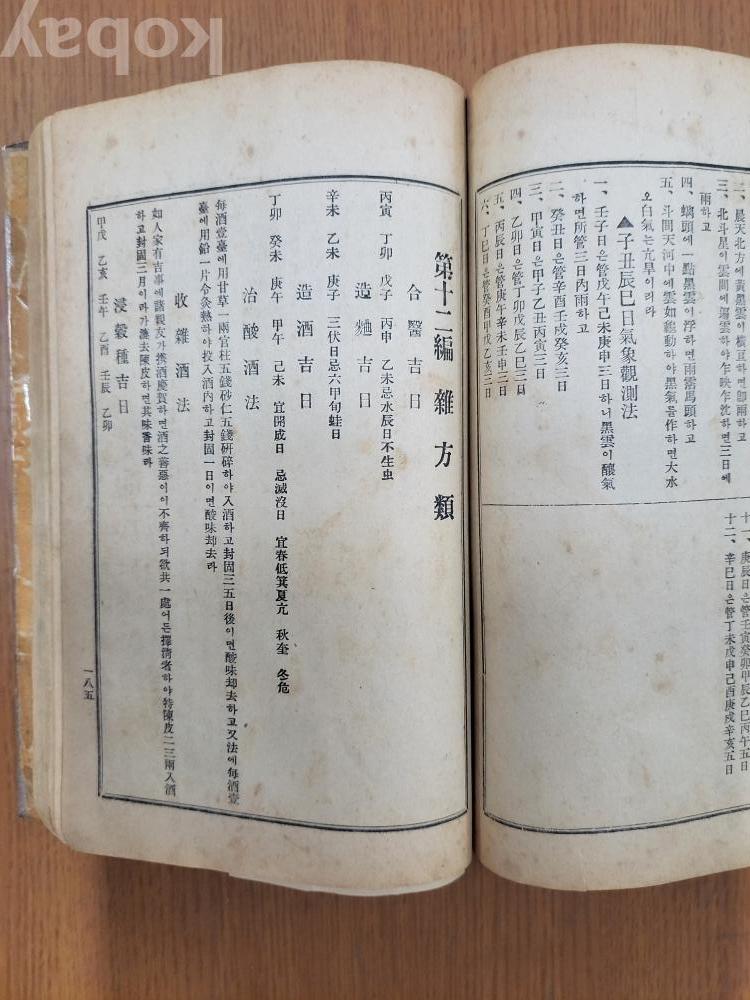 kobay
二、晨天北方에黃黑雲이橫亘하면卽雨하고
三、北斗星이雲間에陽雲하야乍映乍沈하면三日에
雨하고
四、螭頭에一點黑雲이浮하면雨雷馬頭하고
五、斗間天河中에雲如龍動하야黑氣를作하면大水
오白氣는亢旱이리라
▲子丑辰巳日氣象觀測法
一、壬子日은管戊午己未庚申三日하니黑雲이釀氣
하면所管三日內雨하고
二、癸丑日은管辛酉壬戌癸亥三日
三、甲寅日은甲子乙丑丙寅三日
四、乙卯日은管丁卯戊辰己巳三日
五、丙辰日은管庚午辛未壬申三日
六、丁巳日은管癸酉甲戌乙亥三日
十一、庚辰日은管壬寅癸卯甲辰乙巳丙午五日
十二、辛巳日은管丁未戊申己酉庚戌辛亥五日
第十二編 雜方類
合醫吉日
丙寅 丁卯 戊子 丙申 乙未忌水辰日不生虫
造麯吉日
辛未 乙未 庚子 三伏日忌六甲旬蛙日
造酒吉日
丁卯 癸未 庚午 甲午 己未 宜開成日 忌滅沒日 宜春低箕夏亢 秋奎 冬危
治酸酒法
每酒壹臺에用甘草一兩官桂五錢砂仁五錢硏碎하야入酒하고封固三五日後이면酸味却去하고又法에每酒壹
臺에用鉛一片令灸熱하야投入酒內하고封固一日이면酸味却去라
收雜酒法
如人家有吉事에諸親友가携酒慶賀하면酒之善惡이이不齊하되欲共一處어든擇淸者하야特陳皮二三兩入酒
하고封固三月이라가漉去陳皮하면其味香味라
浸穀種吉日
甲戌 乙亥 壬午 乙酉 壬辰 乙卯
一八五